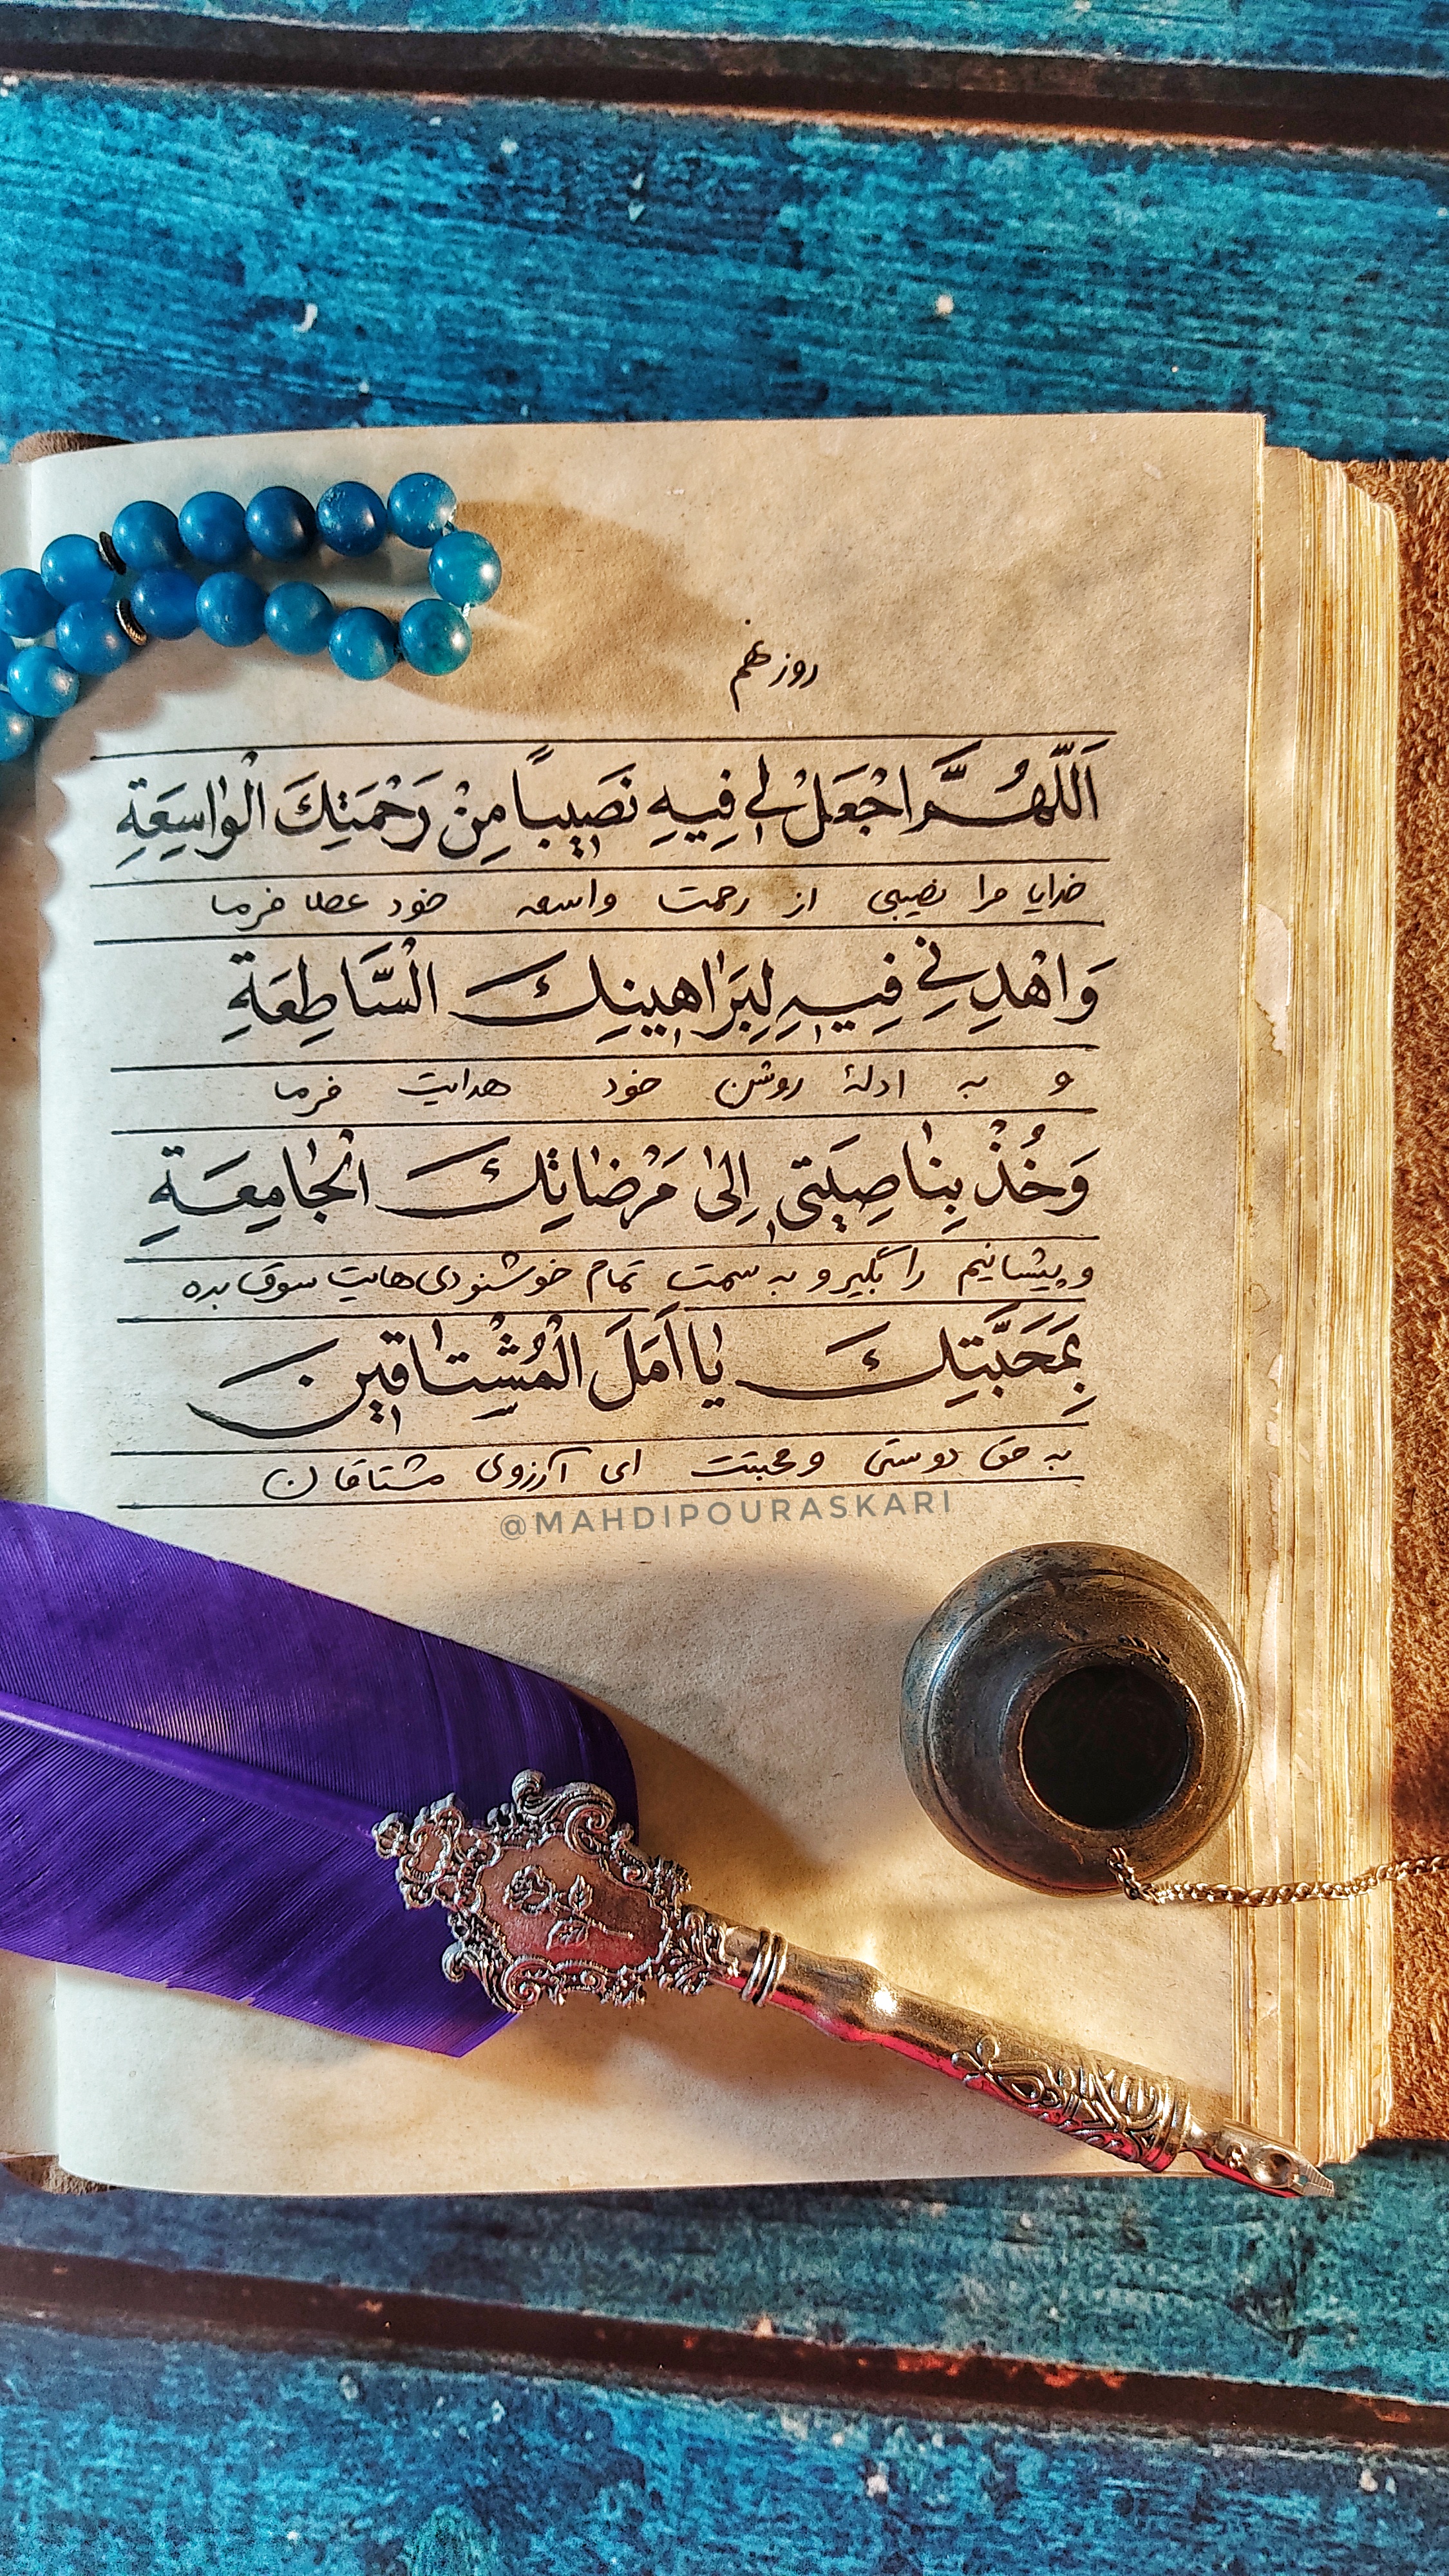 روز نهم
اَللّٰهُمَّ اجْعَلْ لِي فِيهِ نَصِيبًا مِنْ رَحْمَتِكَ الْوٰاسِعَةِ
خدایا مرا نصیبی از رحمت واسعه خود عطا فرما
وَاهْدِنِي فِيهِ لِبَرٰاهِينِكَ السَّاطِعَةِ
و به ادلهٔ روشن خود هدایت فرما
وَخُذْ بِنٰاصِيَتِي إِلىٰ مَرْضٰاتِكَ الْجٰامِعَةِ
و پیشانیم را بگیر و به سمت تمام خوشنودی‌هایت سوق بده
بِمَحَبَّتِكَ يٰا اَمَلَ الْمُشْتٰاقِينَ
به حق دوستی و محبتت ای آرزوی مشتاقان
@MAHDIPOURASKARI